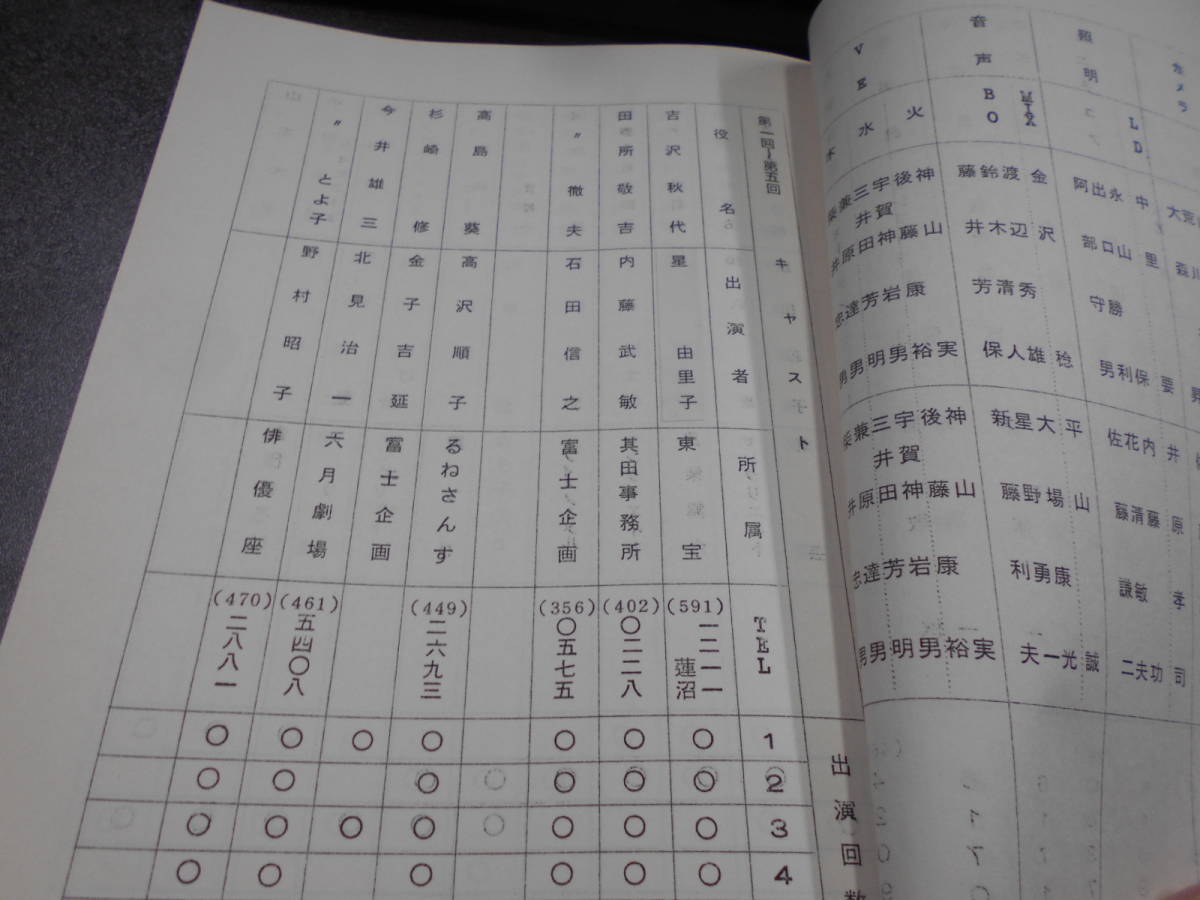 カメラ
照明
LD
音声
MIX
BO
VE
火
水
木
中里要
永山勝保
出口守利
阿部男
金沢稔
渡辺秀雄
鈴木清人
藤井芳保
神山実
後藤康裕
宇賀神岩男
三井田芳明
兼原達男
柴井忠男
井原孝司
内藤敏功
花清夫
佐藤謙二
平山誠
大場康光
星野勇一
新藤利夫
神山実
後藤康裕
宇賀神岩男
三井田芳明
兼原達男
柴井忠男
第一回〜第五回
キャスト
出演回数
役名
出演者
所属
TEL
1
2
3
4
吉沢秋代
星由里子
東宝
(591)一二一一
蓮沼
○
○
○
○
田所敬吉
内藤武敏
其田事務所
(402)〇二二八
○
○
○
○
〃徹夫
石田信之
富士企画
(356)〇五七五
○
○
○
○
高島葵
高沢順子
るねさんす
(449)二六九三
○
○
○
○
杉崎修
金子吉延
富士企画
○
○
今井雄三
北見治一
六月劇場
(461)五四〇八
○
○
○
○
〃とよ子
野村昭子
俳優座
(470)二八八一
○
○
○
○